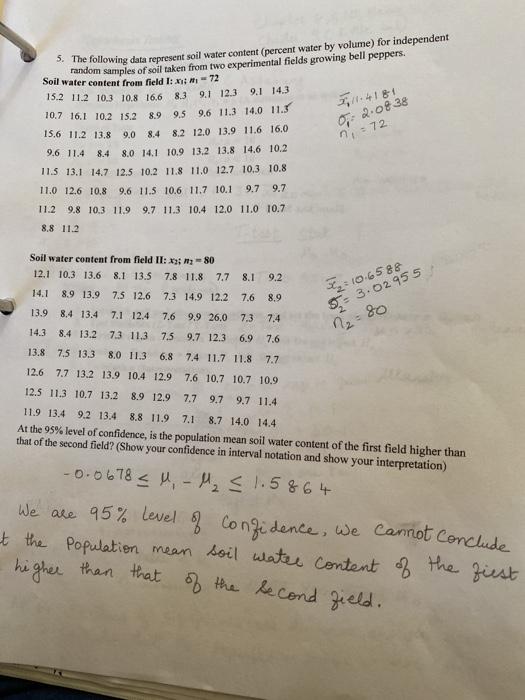 5. The following data represent soil water content (percent water by volume) for independent
random samples of soil taken from two experimental fields growing bell peppers.
Soil water content from field I: x₁; n₁ = 72
15.2 11.2 10.3 10.8 16.6 8.3 9.1 12.3 9.1 14.3
10.7 16.1 10.2 15.2 8.9 9.5 9.6 11.3 14.0 11.3
15.6 11.2 13.8 9.0 8.4 8.2 12.0 13.9 11.6 16.0
9.6 11.4 8.4 8.0 14.1 10.9 13.2 13.8 14.6 10.2
11.5 13.1 14.7 12.5 10.2 11.8 11.0 12.7 10.3 10.8
11.0 12.6 10.8 9.6 11.5 10.6 11.7 10.1 9.7 9.7
11.2 9.8 10.3 11.9 9.7 11.3 10.4 12.0 11.0 10.7
8.8 11.2
x̄₁ 11.4181
σ₁ = 2.0838
n₁ = 72
Soil water content from field II: x₂; n₂ = 80
12.1 10.3 13.6 8.1 13.5 7.8 11.8 7.7 8.1 9.2
14.1 8.9 13.9 7.5 12.6 7.3 14.9 12.2 7.6 8.9
13.9 8.4 13.4 7.1 12.4 7.6 9.9 26.0 7.3 7.4
14.3 8.4 13.2 7.3 11.3 7.5 9.7 12.3 6.9 7.6
13.8 7.5 13.3 8.0 11.3 6.8 7.4 11.7 11.8 7.7
12.6 7.7 13.2 13.9 10.4 12.9 7.6 10.7 10.7 10.9
12.5 11.3 10.7 13.2 8.9 12.9 7.7 9.7 9.7 11.4
11.9 13.4 9.2 13.4 8.8 11.9 7.1 8.7 14.0 14.4
x̄₂ = 10.6588
σ₂ = 3.02955
n₂ = 80
At the 95% level of confidence, is the population mean soil water content of the first field higher than
that of the second field? (Show your confidence in interval notation and show your interpretation)
-0.0678 ≤ μ₁ - μ₂ ≤ 1.5864
We are 95% level of confidence, we cannot conclude
t the population mean soil water content of the first
higher than that of the second field.